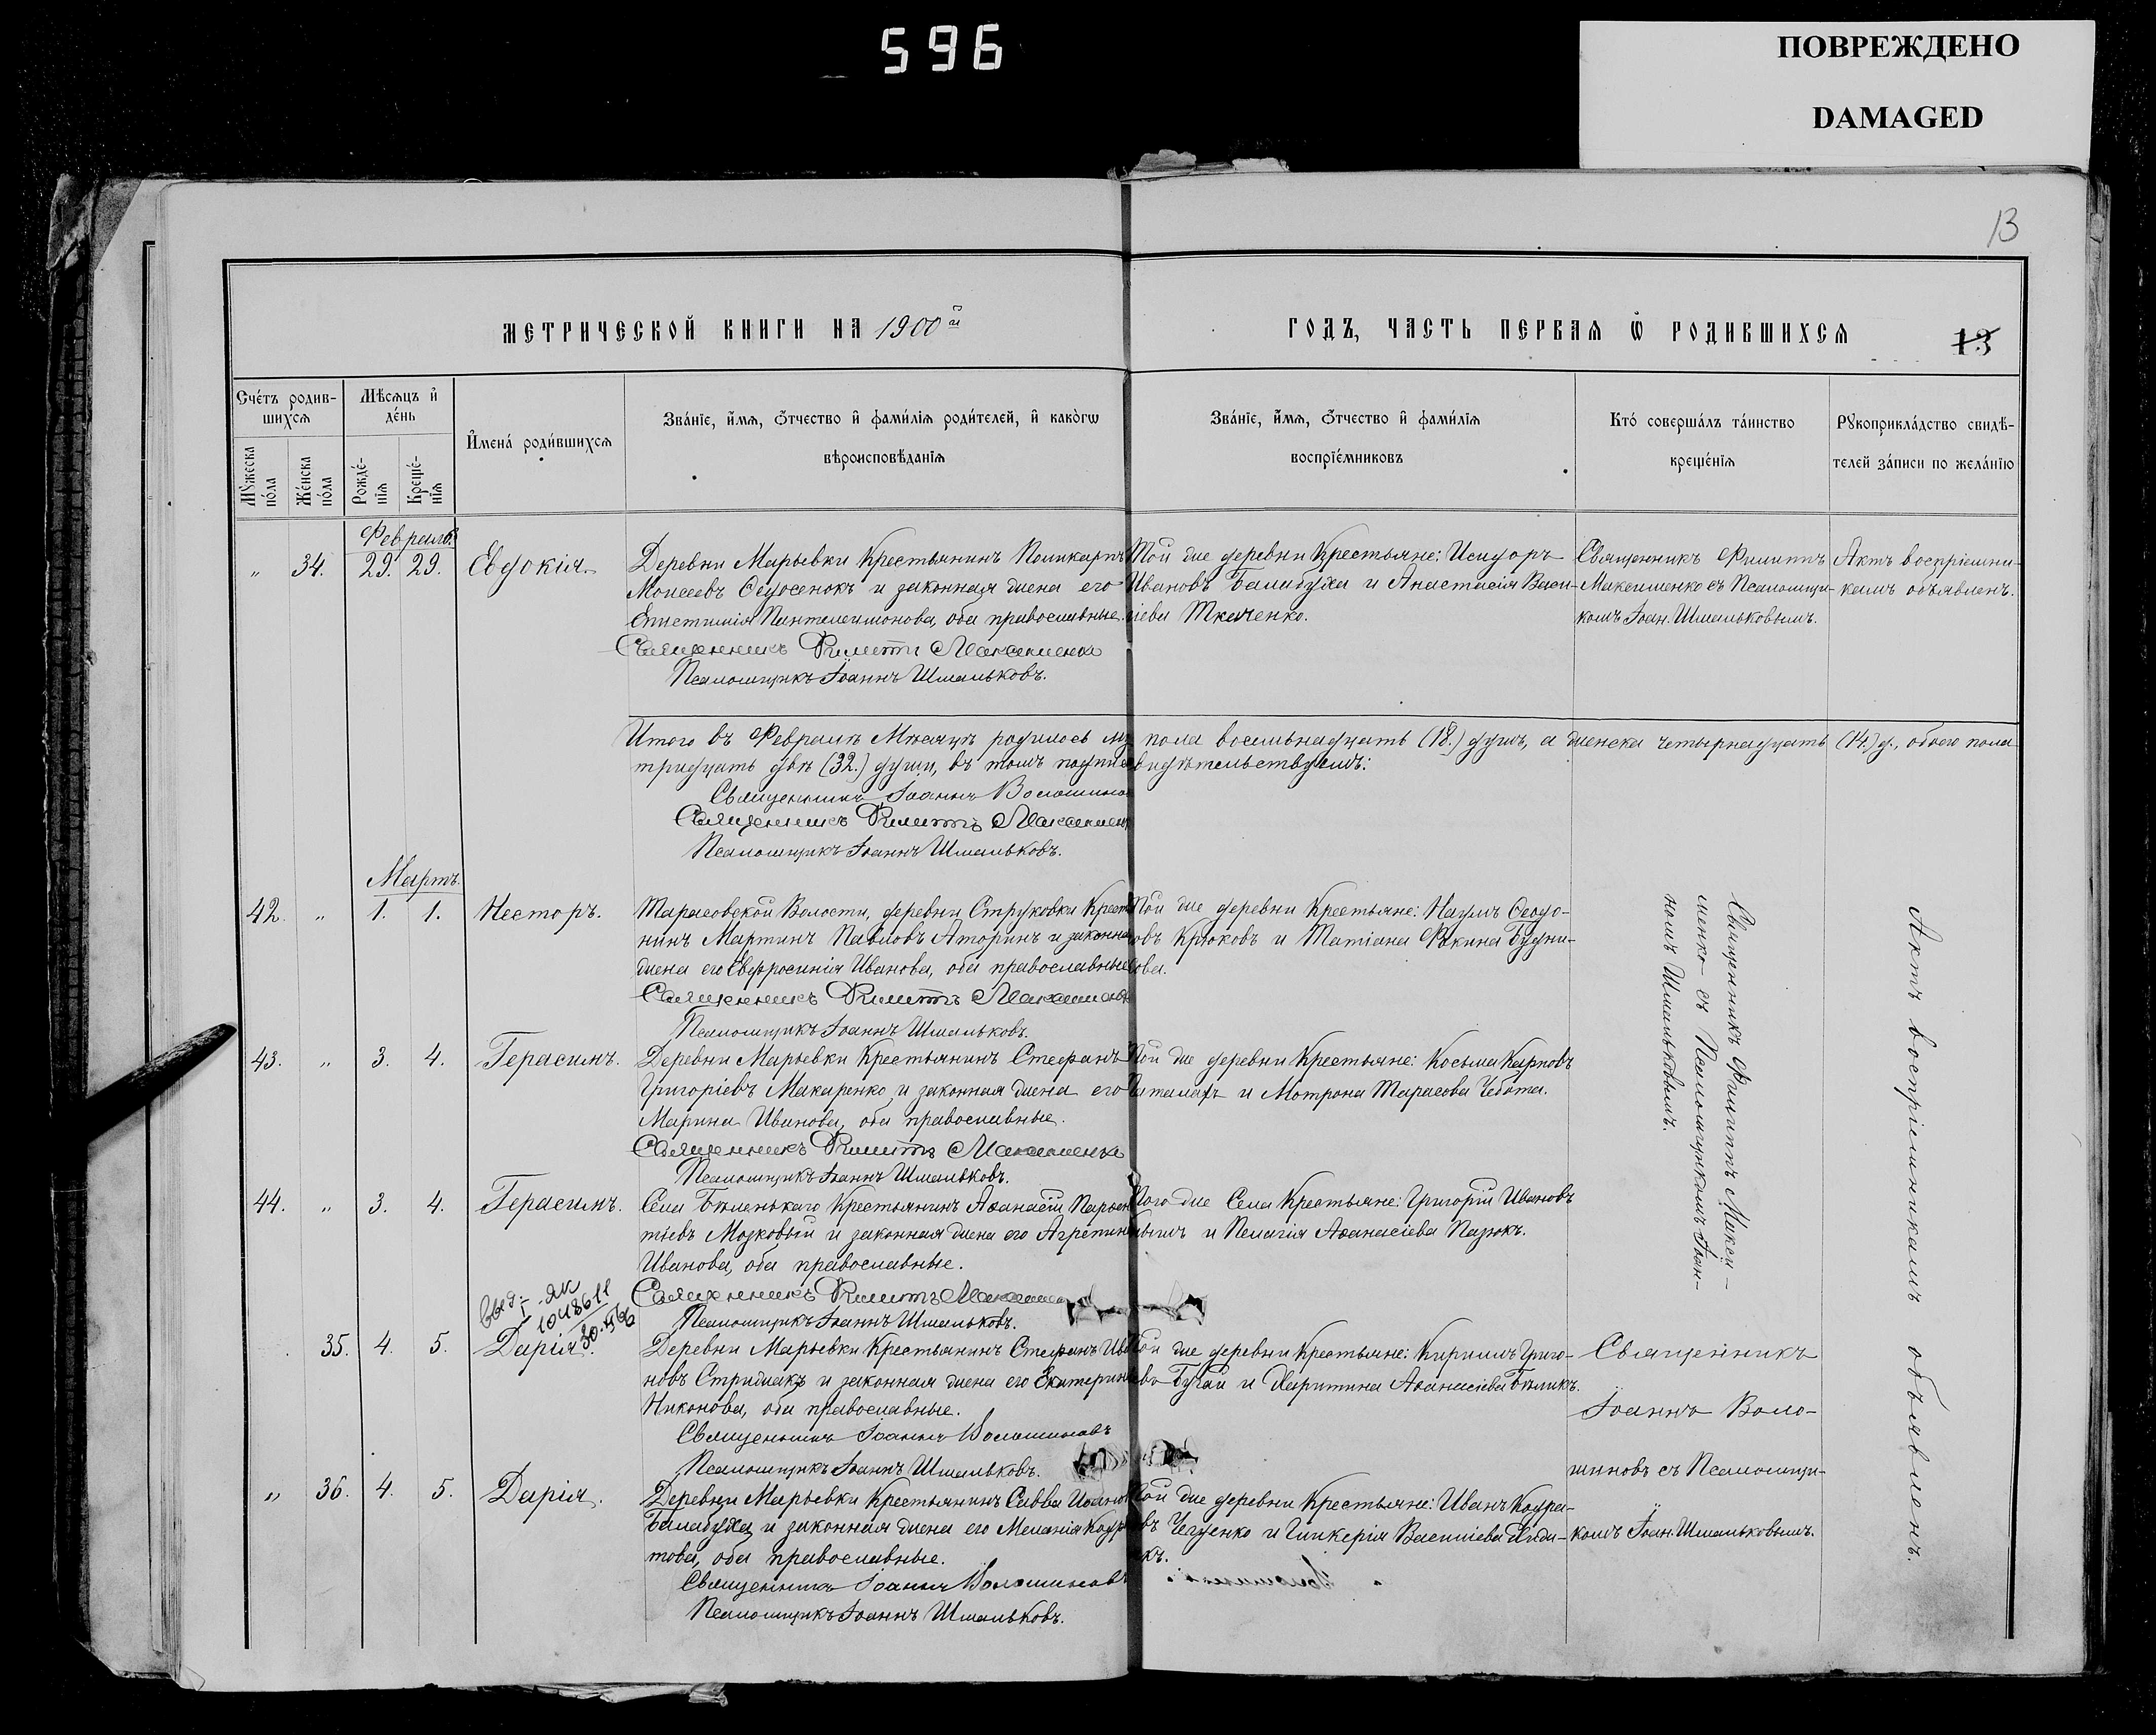 596
ПОВРЕЖДЕНО
DAMAGED
13
МЕТРИЧЕСКОЙ КНИГИ НА 1900й
ГОДЪ, ЧАСТЬ ПЕРВАЯ Ѡ РОДИВШИХСЯ
13
Счетъ родив-
шихся
Мужеска
пола
Женска
пола
Мѣсяцъ и
день
Рожде-
нія
Креще-
нія
Имена родившихся
Званіе, имя, отчество и фамилія родителей, и какогѡ
вѣроисповѣданія
Званіе, имя, отчество и фамилія
воспріемниковъ
Кто совершалъ таинство
крещенія
Рукоприкладство свидѣ-
телей записи по желанію
Февраль.
„ 34. 29. 29. Евдокія.
Деревни Марьевки Крестьянинъ Поликарпъ
Моисеевъ Федосенокъ и законная жена его
Епистимія Пантелеимонова, оба православные.
Священникъ Филиппъ Максименко
Псаломщикъ Іоаннъ Шмальковъ.
Той же деревни Крестьяне: Исидоръ
Ивановъ Балабуха и Анастасія Васи-
ліева Ткаченко.
Священникъ Филиппъ
Максименко съ Псаломщи-
комъ Іоан. Шмальковымъ.
Актъ воспріемни-
камъ объявленъ.
Итого въ Февралѣ Мѣсяцѣ родилось муж пола восемьнадцать (18.) душъ, а женска четырнадцать (14.) д., обоего пола
тридцать двѣ (32.) души, въ томъ подпис видѣтельствуемъ:
Священникъ Іоаннъ Волошинов
Священникъ Филиппъ Максимен
Псаломщикъ Іоаннъ Шмальковъ.
Мартъ.
42. „ 1. 1. Несторъ.
Тарасовской Волости, деревни Струковки Крест
нинъ Мартинъ Павловъ Аторинъ и законна
жена его Евфросинія Иванова, оба православные
Священникъ Филиппъ Максимен
Псаломщикъ Іоаннъ Шмальковъ.
Той же деревни Крестьяне: Наумъ Феодо-
овъ Крюковъ и Татіана Фокина Будни-
ова.
43. „ 3. 4. Герасимъ.
Деревни Марьевки Крестьянинъ Стефанъ
Григоріевъ Макаренко и законная жена его
Марина Иванова, оба православные.
Священникъ Филиппъ Максименко
Псаломщикъ Іоаннъ Шмальковъ.
Той же деревни Крестьяне: Косьма Карповъ
и Мотрона Тарасова Чебота.
44. „ 3. 4. Герасимъ.
Села Бѣленькаго Крестьянинъ Аѳанасій Парѳен
тьевъ Мозковой и законная жена его Агрепин
Иванова, оба православные.
Священникъ Филиппъ Максимен
Псаломщикъ Іоаннъ Шмальковъ.
Того же Села Крестьяне: Григорій Ивановъ
и Пелагія Аѳанасіева Пазюкъ.
Священникъ Филиппъ Макси-
менко съ Псаломщикомъ Іоан-
номъ Шмальковымъ.
Актъ воспріемникамъ объявленъ.
I-ЯК
1048611
35. 4. 5. Дарія.
Деревни Марьевки Крестьянинъ Стефанъ Ива
новъ Стрижакъ и законная жена его Екатерин
Никонова, оба православные.
Священникъ Іоаннъ Волошиновъ
Псаломщикъ Іоаннъ Шмальковъ.
Той же деревни Крестьяне: Кириллъ Григо-
евъ Бугай и Харитина Аѳанасіева Бѣликъ.
Священникъ
Іоаннъ Воло-
шиновъ съ Псаломщи-
комъ Іоан. Шмальковымъ.
„ 36. 4. 5. Дарія.
Деревни Марьевки Крестьянинъ Савва Иванов
Балабуха и законная жена его Меланія Кодр
това, оба православные.
Священникъ Іоаннъ Волошиновъ
Псаломщикъ Іоаннъ Шмальковъ.
Той же деревни Крестьяне: Иванъ Кодра-
въ и Гликерія Василіева
къ.